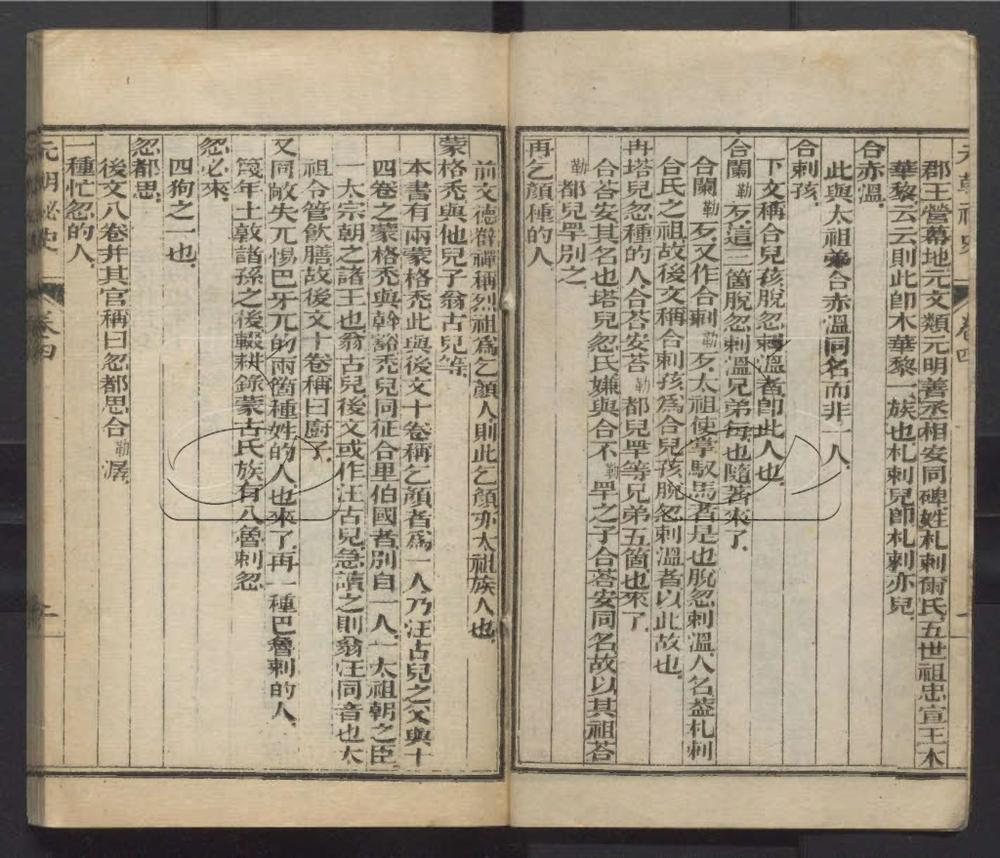 元朝秘史 卷四
郡王營幕地元文類元明善丞相安同碑姓札剌爾氏五世祖忠宣王木
華黎云云則此卽木華黎一族也札剌兒卽札剌亦兒
合赤溫
此與太祖弟合赤溫同名而非一人
合剌孩
下文稱合兒孩脫忽剌溫者卽此人也
合闌勒歹這三箇脫忽剌溫兄弟每也隨著來了
合闌勒歹又作合剌勒歹太祖使掌馭馬者是也脫忽剌溫人名蓋札剌
合氏之祖故後文稱合剌孩爲合兒孩脫忽剌溫者以此故也
再塔兒忽種的人合荅安荅勒都兒罕等兄弟五箇也來了
合荅安其名也塔兒忽氏嫌與合不勒罕之子合荅安同名故以其祖荅
勒都兒罕別之
再乞顏種的人
前文德薛禪稱烈祖爲乞顏人則此乞顏亦太祖族人也
蒙格禿與他兒子翁古兒等
本書有兩蒙格禿此與後文十卷稱乞顏者爲一人乃汪古兒之父與十
四卷之蒙格禿與斡豁禿兒同征合里伯國者別自一人一太祖朝之臣
一太宗朝之諸王也翁古兒後文或作汪古兒急讀之則翁汪同音也太
祖令管飮膳故後文十卷稱曰廚子
又同敞失兀惕巴牙兀的兩箇種姓的人也來了再一種巴魯剌的人
篾年土敦諸孫之後輟耕錄蒙古氏族有八魯剌忽
忽必來
四狗之一也
忽都思
後文八卷井其官稱曰忽都思合勒潺
一種忙忽的人
元朝秘史 卷四 二